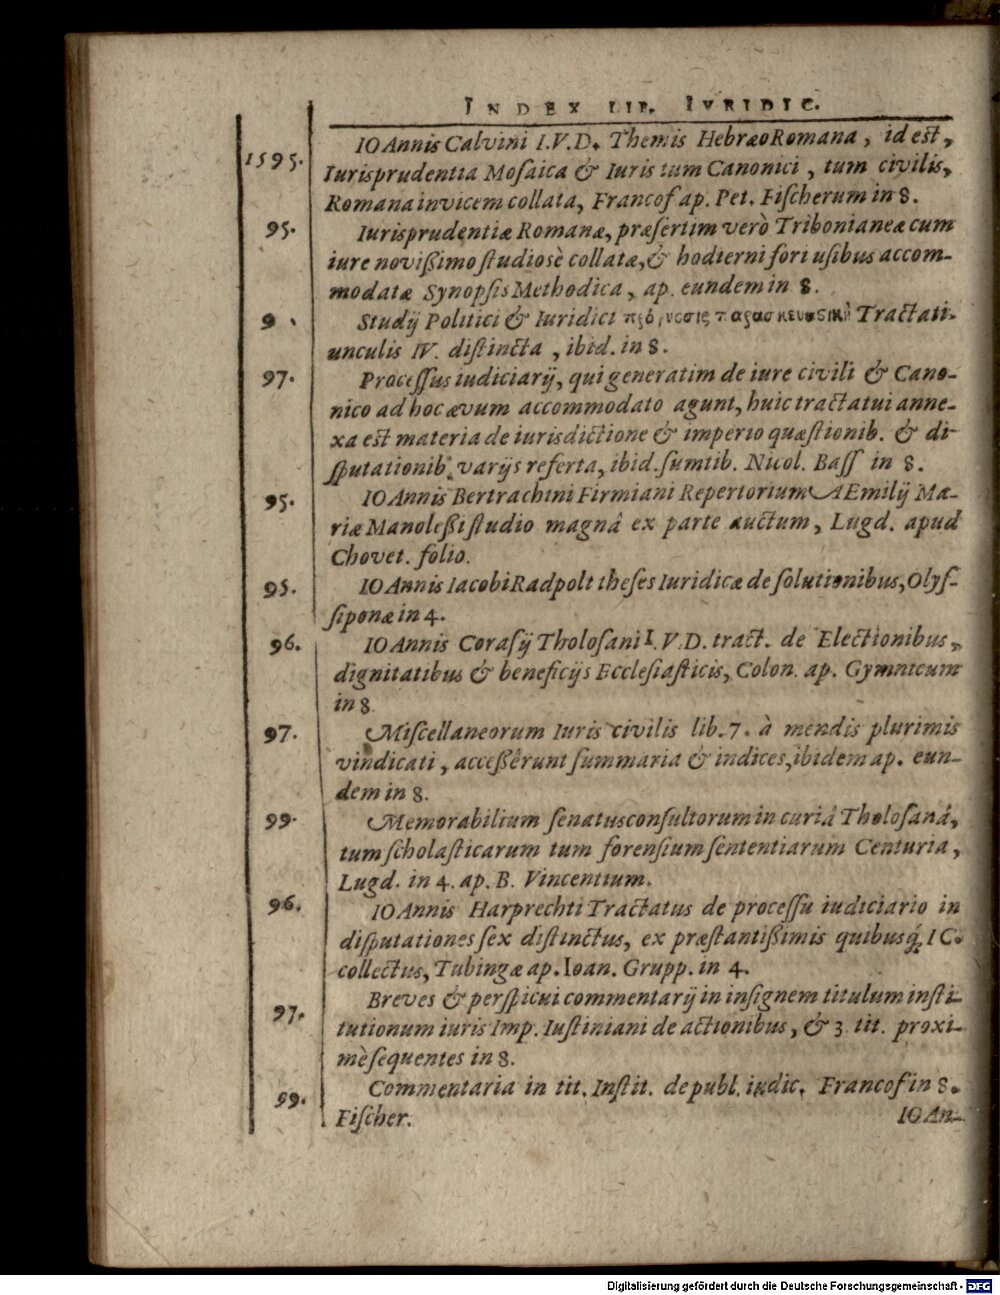 INDEX LIB. IVRIDIC.
1595. IOAnnis Calvini I.V.D. Themis HebræoRomana, id est,
Iurisprudentia Mosaica & Iuris tum Canonici, tum civilis,
Romana invicem collata, Francof ap. Pet. Fischerum in 8.
95. Iurisprudentiæ Romanæ, præsertim verò Tribonianeæ cum
iure novißimo studiosè collatæ, & hodierni fori usibus accom-
modatæ Synopsis Methodica, ap. eundem in 8.
9 Studij Politici & Iuridici Tractati-
unculis IV. distincta, ibid. in 8.
97. Processus iudiciarij, qui generatim de iure civili & Cano-
nico ad hoc ævum accommodato agunt, huic tractatui anne-
xa est materia de iurisdictione & imperio quæstionib. & di-
sputationib. varijs referta, ibid. sumtib. Nicol. Bass in 8.
95. IOAnnis Bertrachini Firmiani Repertorium AEmilij Ma-
riæ Manoleßi studio magnâ ex parte auctum, Lugd. apud
Chovet. folio.
95. IOAnnis Iacobi Radpolt theses Iuridicæ de solutionibus, Olys-
siponæ in 4.
96. IOAnnis Corasij Tholosani I.V.D. tract. de Electionibus,
dignitatibus & beneficijs Ecclesiasticis, Colon. ap. Gymnicum
in 8.
97. Miscellaneorum Iuris civilis lib. 7. à mendis plurimis
vindicati, acceßêrunt summaria & indices, ibidem ap. eun-
dem in 8.
99. Memorabilium senatusconsultorum in curiâ Tholosanâ,
tum scholasticarum tum forensium sententiarum Centuria,
Lugd. in 4. ap. B. Vincentium.
96. IOAnnis Harprechti Tractatus de processu iudiciario in
disputationes sex distinctus, ex præstantißimis quibusq́; IC.
collectus, Tubingæ ap. Ioan. Grupp. in 4.
97. Breves & perspicui commentarij in insignem titulum insti-
tutionum iuris Imp. Iustiniani de actionibus, & 3 tit. proxi-
mè sequentes in 8.
99. Commentaria in tit. Instit. de publ. iudic. Francof in 8.
Fischer. IOAn-
Digitalisierung gefördert durch die Deutsche Forschungsgemeinschaft - DFG